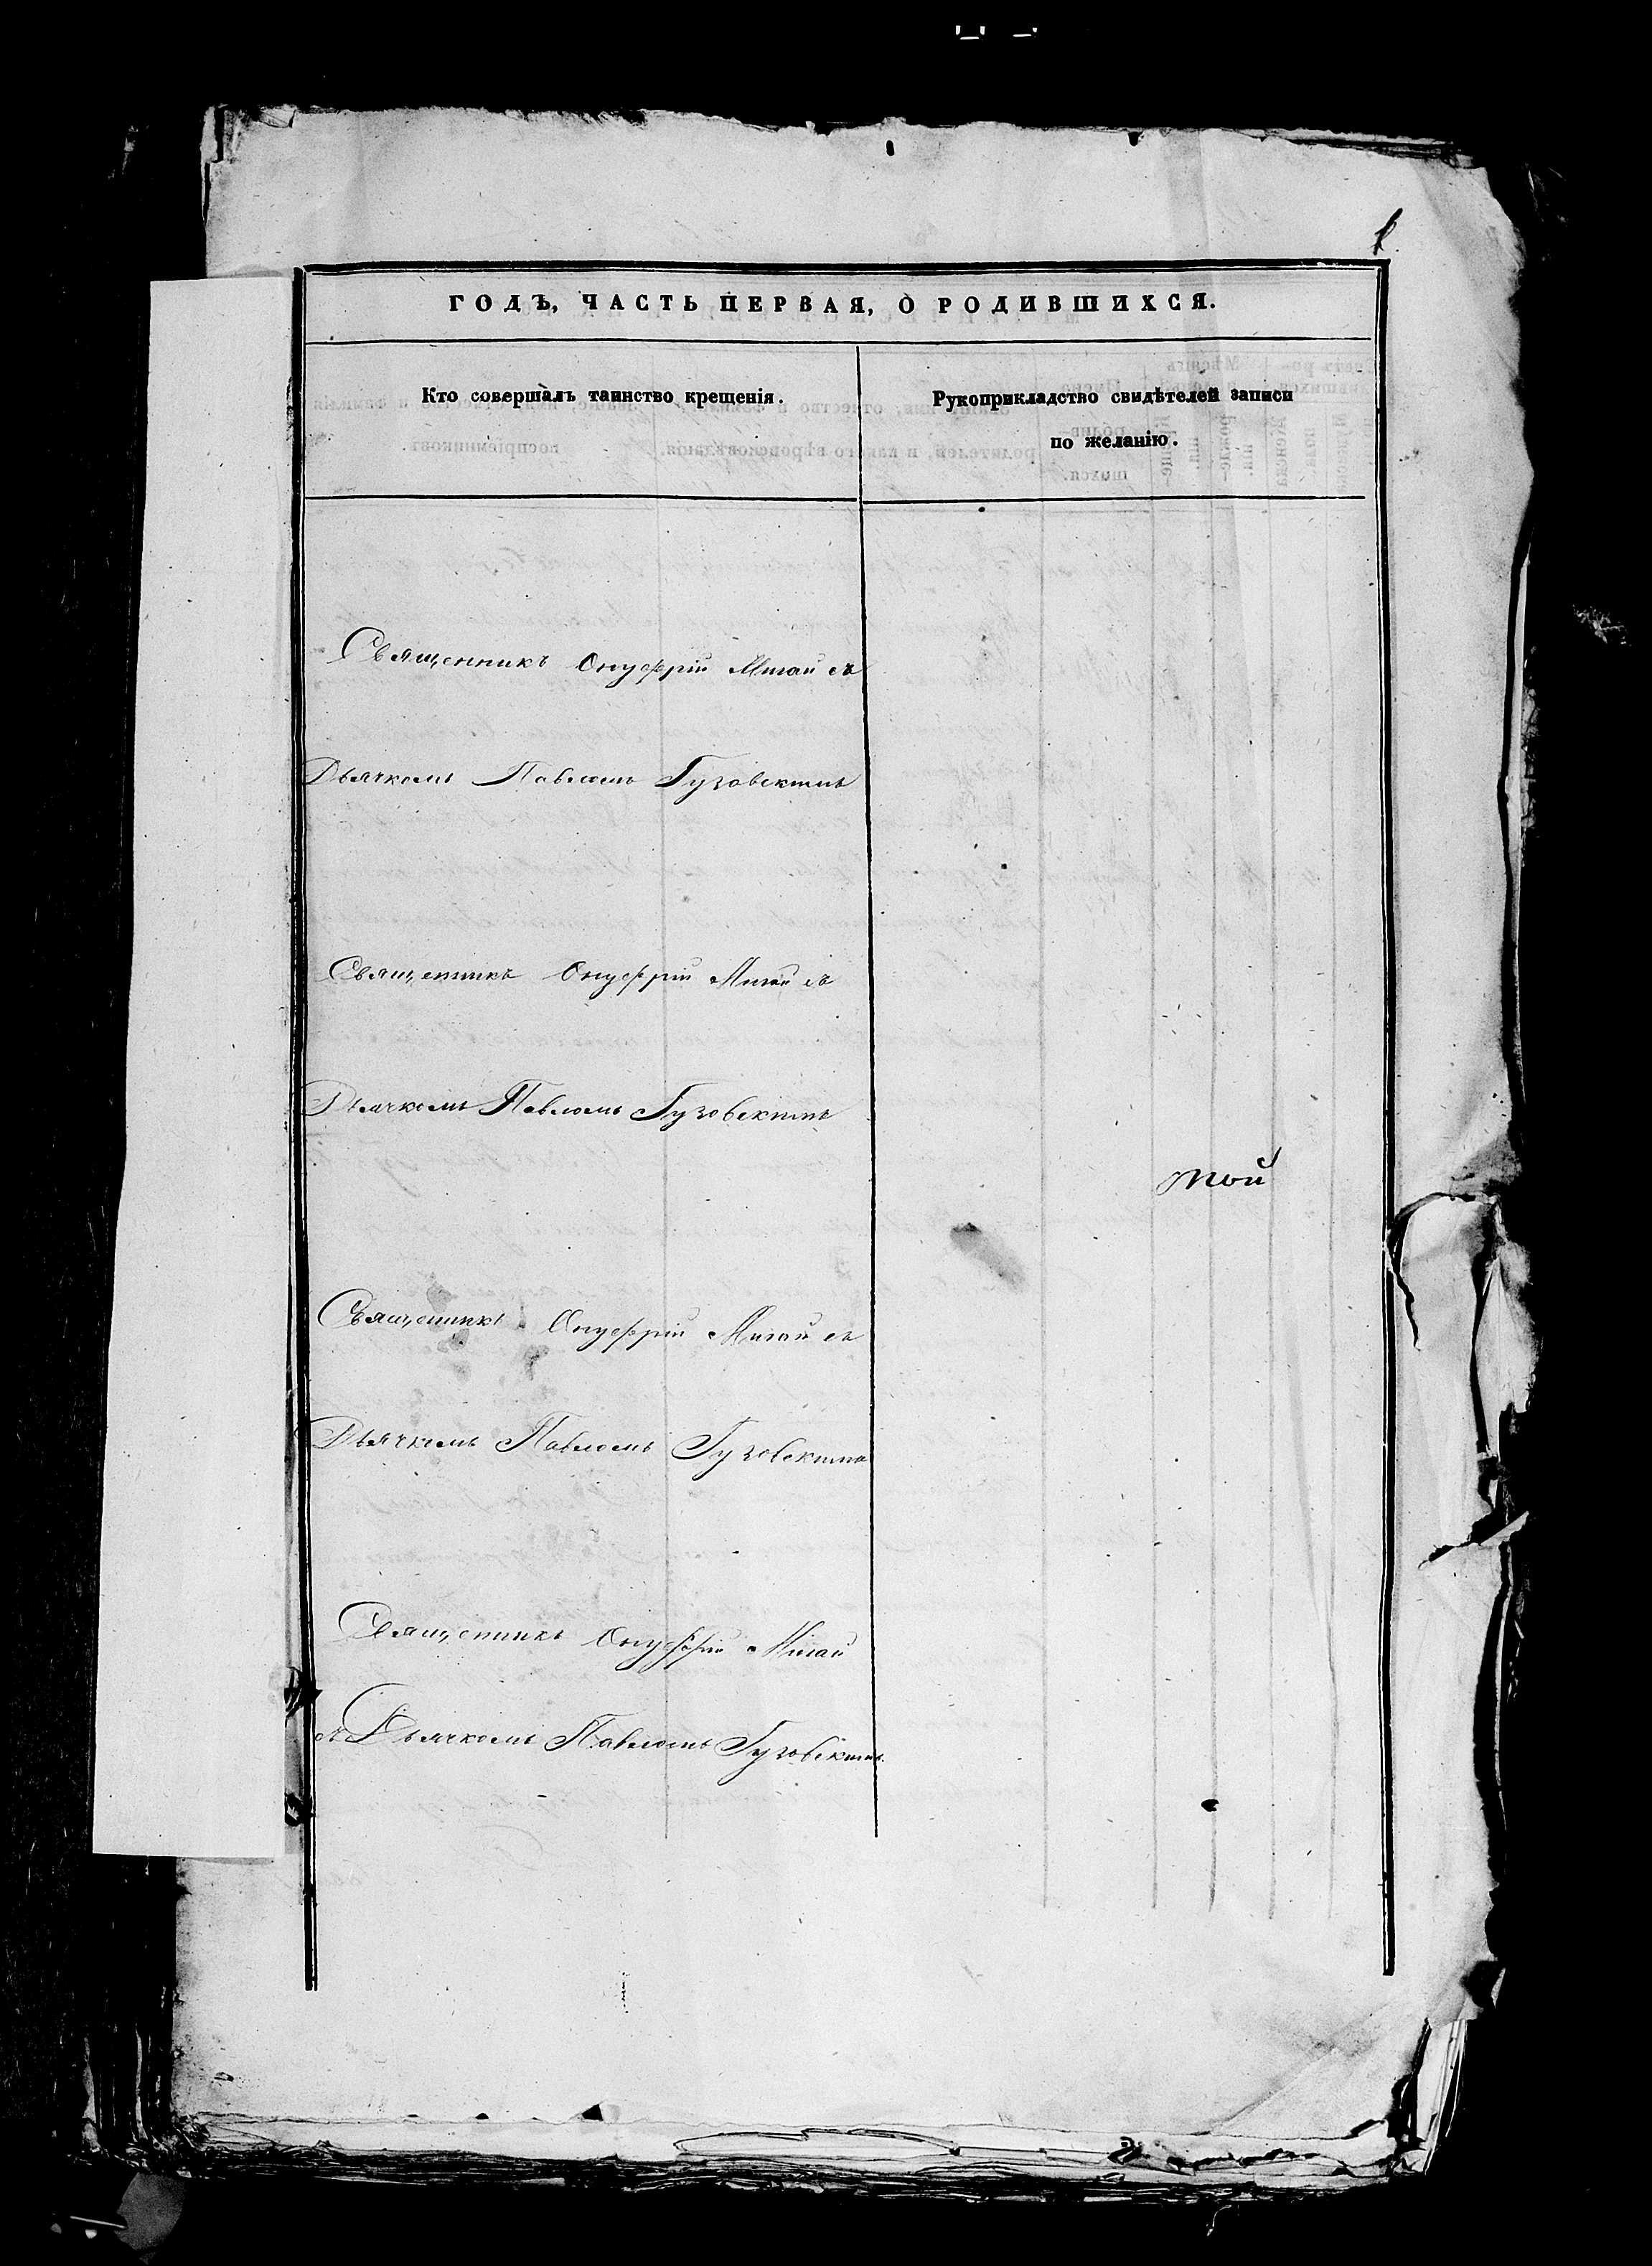 ГОДЪ, ЧАСТЬ ПЕРВАЯ, О РОДИВШИХСЯ.
Кто совершалъ таинство крещенія.
Рукоприкладство свидѣтелей записи
по желанію.
Священникъ Онуфрій Мигай съ
Дьячкомъ Павломъ Гузовскимъ
Священникъ Онуфрій Мигай съ
Дьячкомъ Павломъ Гузовскимъ
той
Священникъ Онуфрій Мигай съ
Дьячкомъ Павломъ Гузовскимъ
Священникъ Онуфрій Мигай
съ Дьячкомъ Павломъ Гузовскимъ.